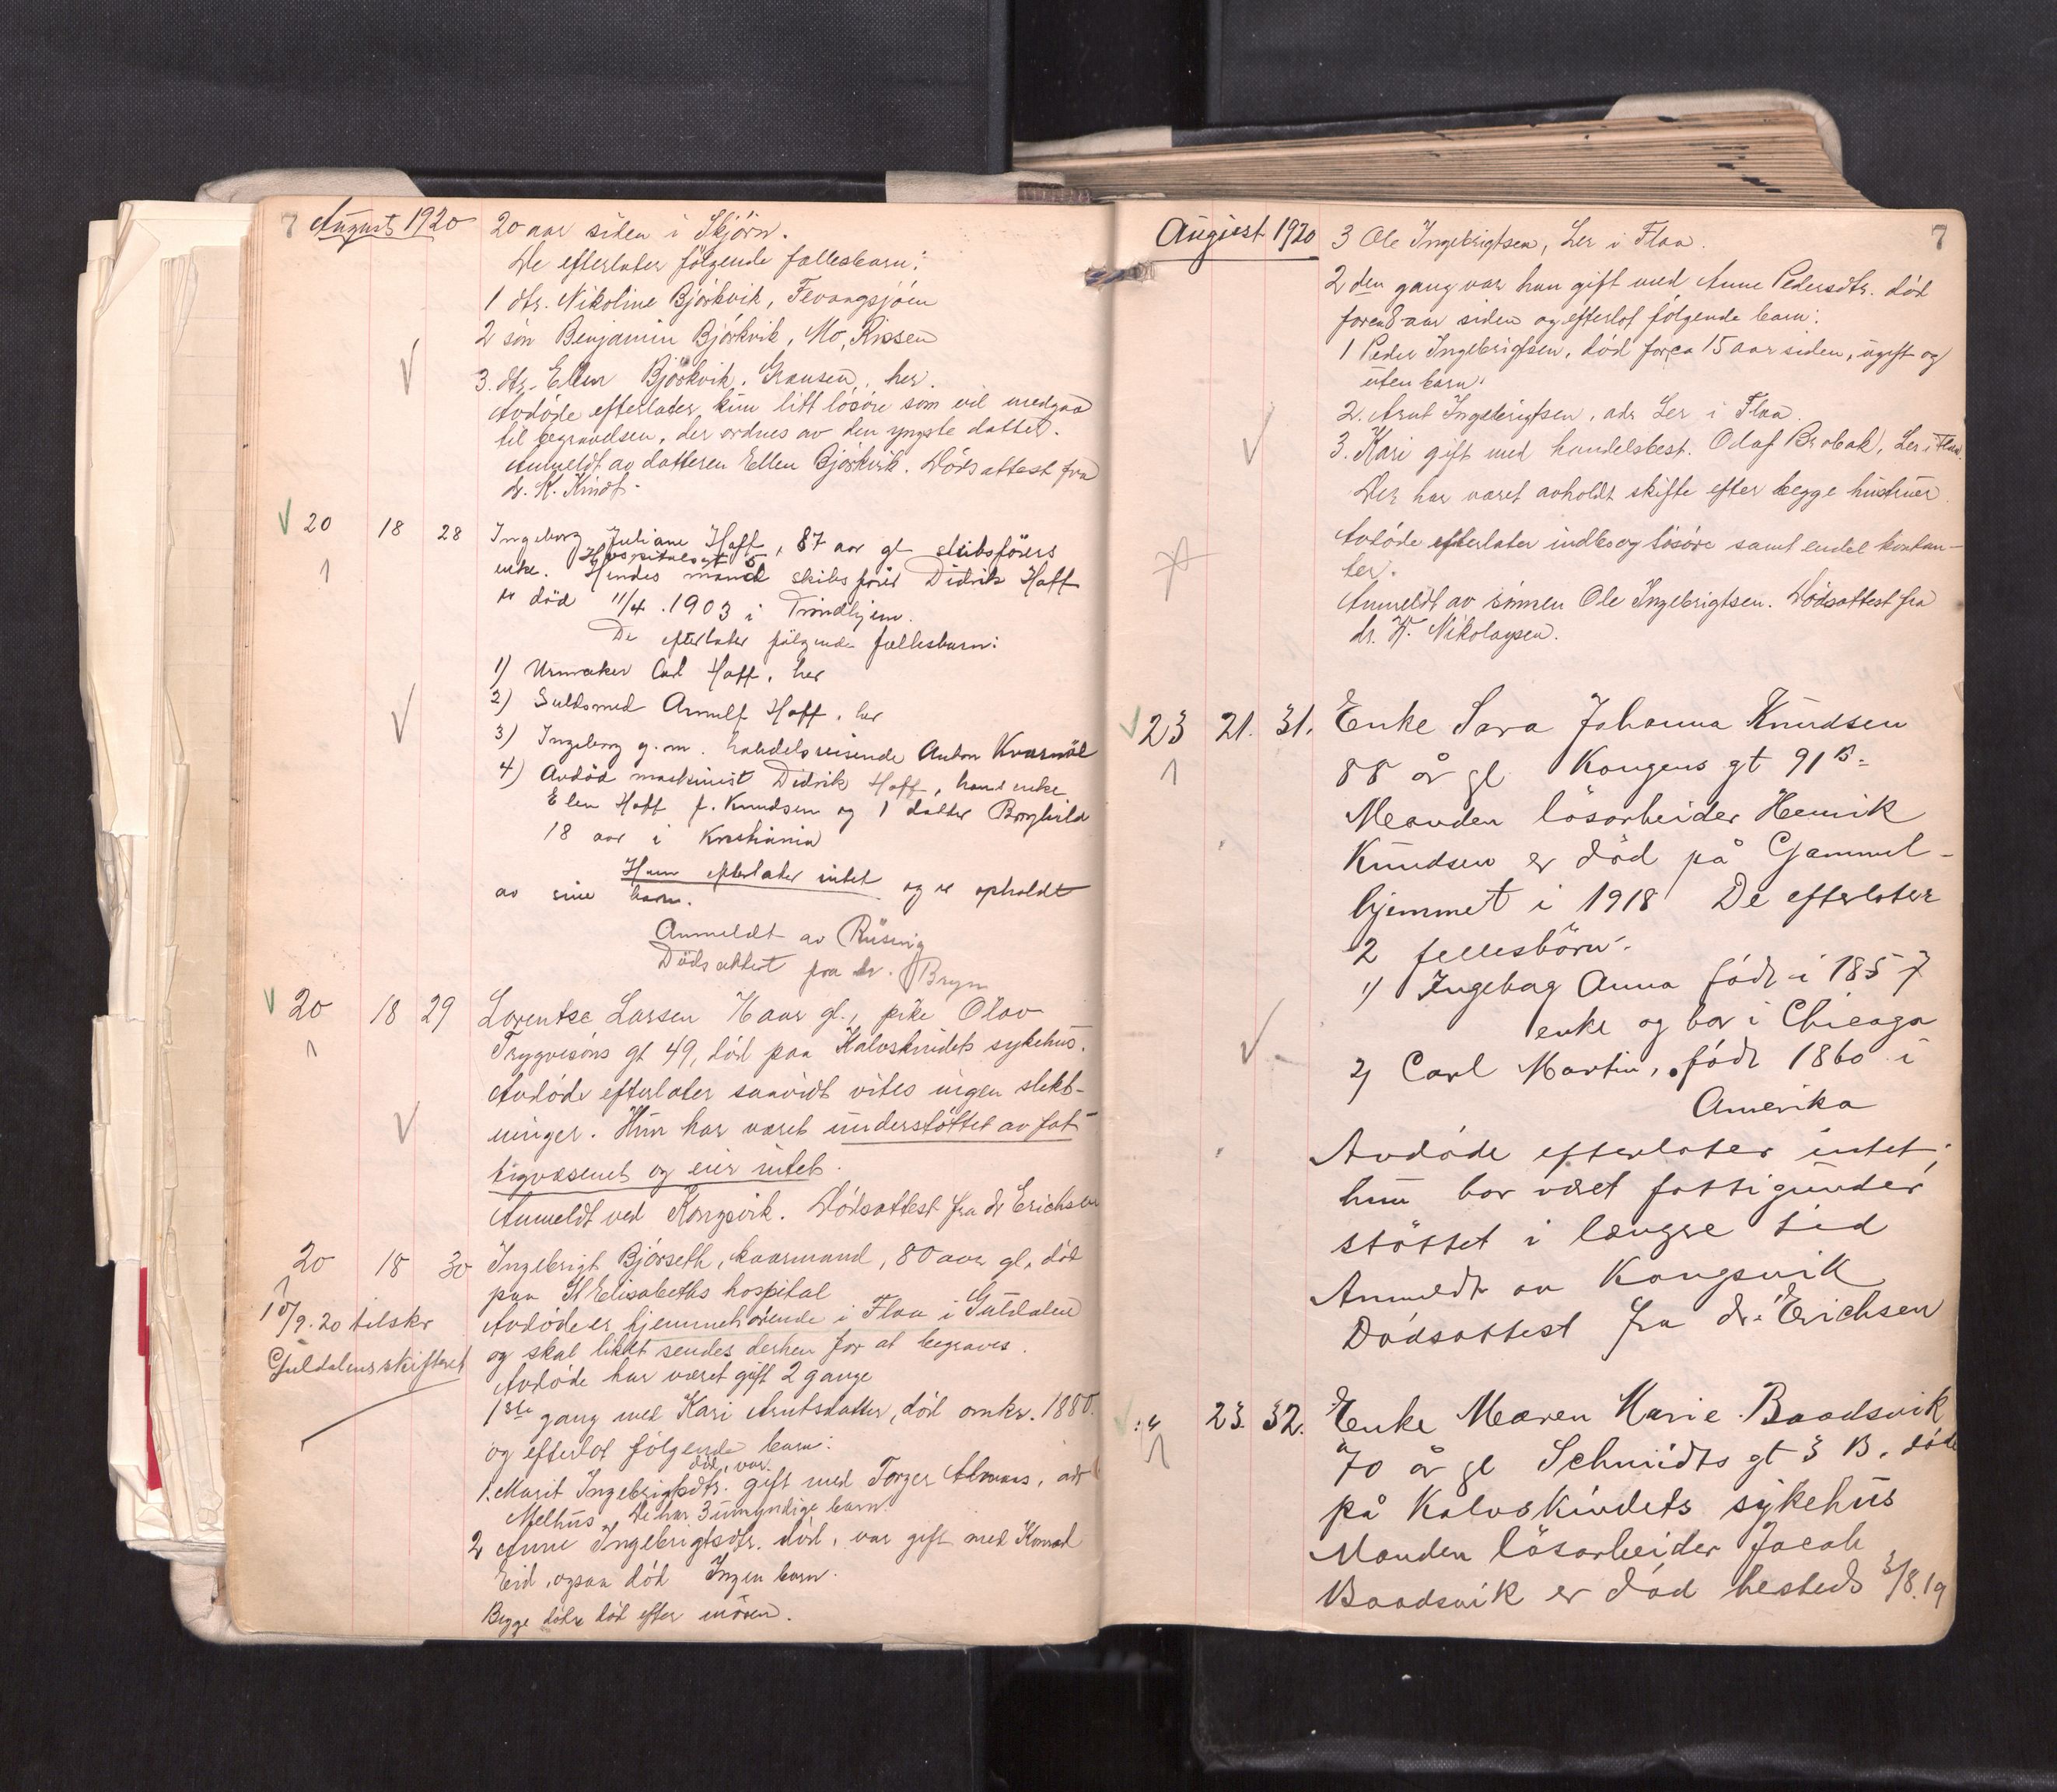 7 August 1920
20 aar siden i Skjörn.
De efterlater følgende fællesbarn:
1 dtr. Nikoline Bjørkvik, Fevaagsjøen
2 søn Benjamin Bjørkvik, Mo, Rissen
3. dtr. Ellen Bjørkvik, her.
Avdøde efterlater kun litt løsøre som vil medgaa
til begravelsen, der ordnes av den yngste datter.
Anmeldt av datteren Ellen Bjørkvik. Dødsattest fra
dr. K. Kindt.
20 18 28 Ingeborg Juliane Hoff, 87 aar gl skibsførers
enke. Hospitalsgt 5
Hendes mand skibsfører Didrik Hoff
er död 11/4 .1903 i Trondhjem.
De efterlater følgende fællesbarn:
1) Urmaker Carl Hoff, her
2) Guldsmed Arnulf Hoff, her
3) Ingeborg g.m. handelsreisende Anton
4) Avdöd maskinist Didrik Hoff, hans enke
Elen Hoff f. Knudsen og 1 datter Borghild
18 aar i Kristiania
Hun efterlater intet og er opholdt
av sine barn.
Anmeldt av Rüsing
Dödsattest fra dr. Bryn
20 18 29 Lorentse Larsen aar gl., pike Olav
Trygvesøns gt 49, død paa Kalvskindets sykehus.
Avdøde efterlater saavidt vites ingen slekt-
ninger. Hun har været understøttet av fat-
tigvæsenet og eier intet.
Anmeldt ved Kongsvik. Dødsattest fra dr Erichsen
20 18 30 Ingebrigt Bjørseth, kaarmand, 80 aar gl, død
paa St Elisabeths hospital
10/9.20 tilskr
Guldalens skifteret
Avdøde er hjemmehørende i Flaa i Guldalen
og skal liket sendes derhen for at begraves.
Avdøde har været gift 2 gange
1ste gang med Kari Arntsdatter, død omkr. 1880.
og efterlot følgende barn:
1. Marit Ingebrigtsdtr. død, var gift med Torger, adr
Melhus De har 3 umyndige barn
2 Anne Ingebrigtsdtr. død, var gift med Konrad
Eid, ogsaa død Ingen barn.
Begge døtre död efter moren.
August 1920 7
3 Ole Ingebrigtsen, Ler i Flaa.
2den gang var han gift med Anne Pedersdtr. død
for ca 8 aar siden og efterlot følgende barn:
1 Peder Ingebrigtsen, død for ca 15 aar siden, ugift og
uten barn.
2. Arnt Ingebrigtsen, adr Ler i Flaa.
3. Kari gift med handelsbest. Olaf Brobak, Ler i Flaa.
Der har været avholdt skifte efter begge hustruer.
Avdøde efterlater indbo og løsøre samt endel kontan-
ter.
Anmeldt av sønnen Ole Ingebrigtsen. Dødsattest fra
dr. K. Nikolaysen.
23 21. 31. Enke Sara Johanna Knudsen
88 år gl Kongens gt 91 B.
Manden løsarbeider Henrik
Knudsen er död på Gammel-
hjemmet i 1918 De efterlater
2 fellesbörn:
1) Ingebog Anna född i 1857
enke og bor i Chicago
2) Carl Martin, född 1860 i
Amerika
Avdøde efterlater intet,
hun har vært fattigunder
støttet i længre tid
Anmeldt av Kongsvik
Dødsattest fra dr. Erichsen
23. 32. Enke Maren Marie Baadsvik
70 år gl Schmidts gt 3 B. död
på Kalvskindets sykehus
Manden løsarbeider Jacob
Baadsvik er död hesteds 3/8.19